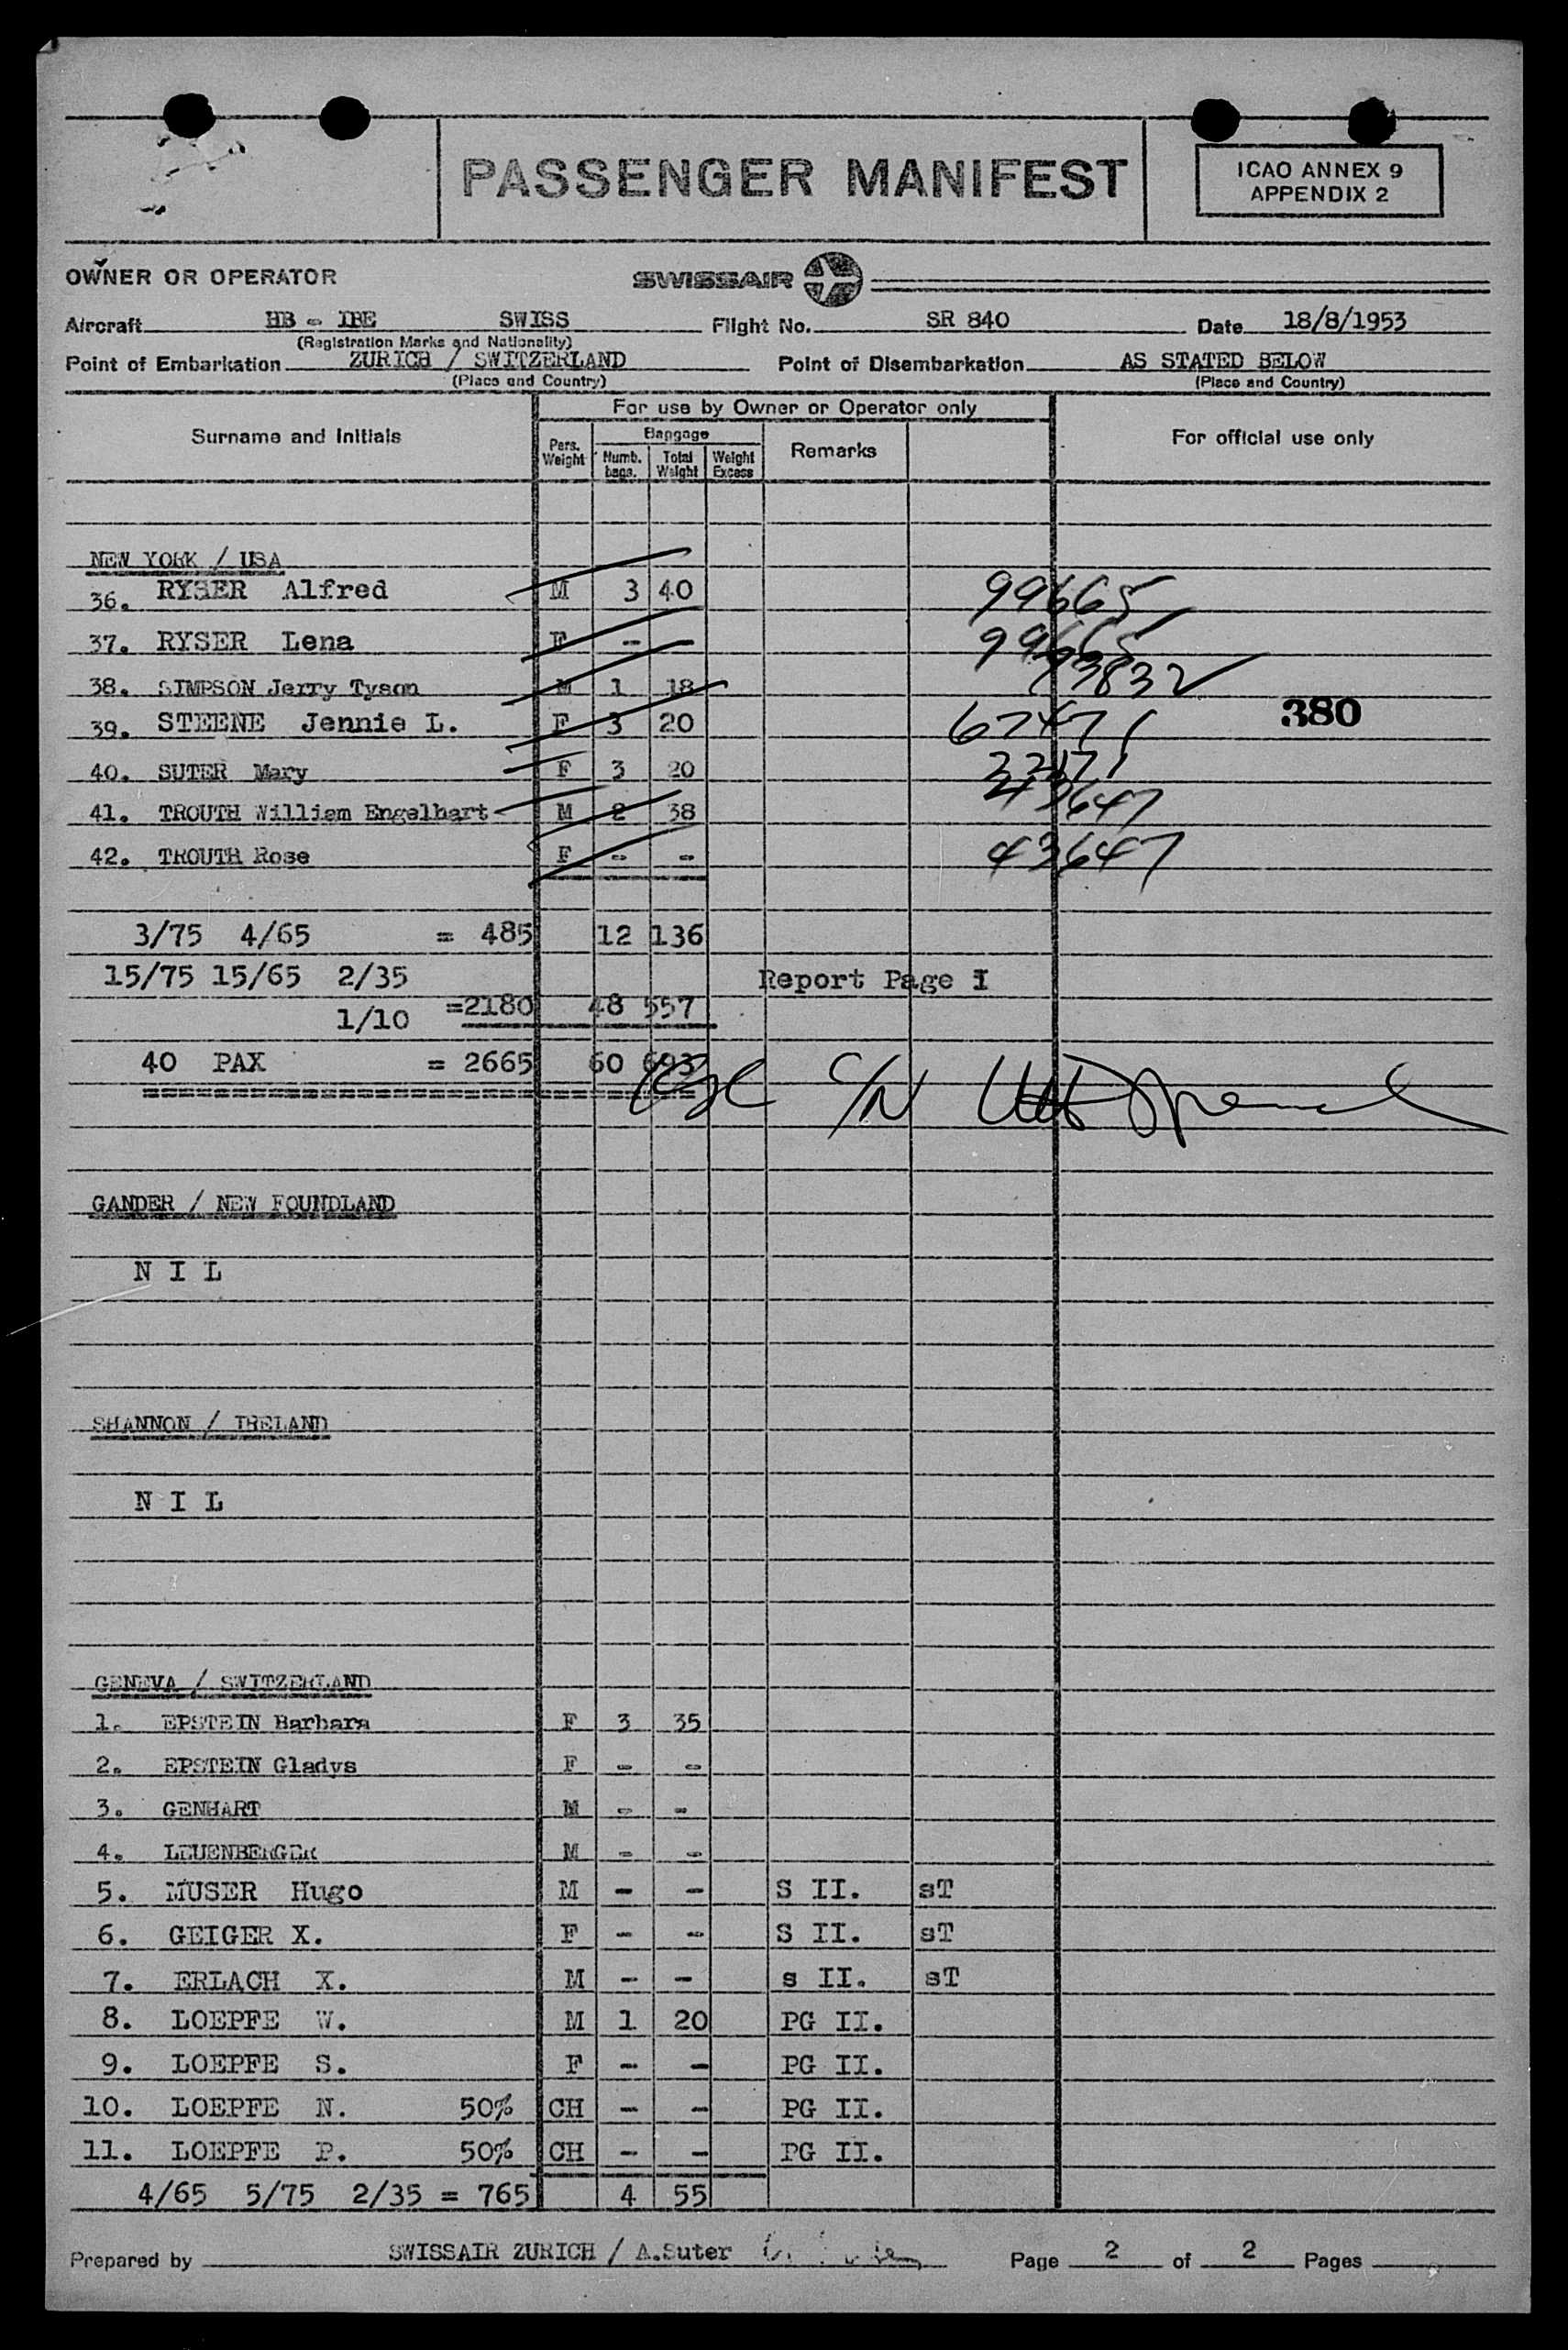 PASSENGER MANIFEST
ICAO ANNEX 9
APPENDIX 2
OWNER OR OPERATOR SWISSAIR
Aircraft HB - IBE SWISS Flight No. SR 840 Date 18/8/1953
(Registration Marks and Nationality)
Point of Embarkation ZURICH / SWITZERLAND Point of Disembarkation AS STATED BELOW
(Place and Country) (Place and Country)
For use by Owner or Operator only
Surname and Initials Pers. Weight Baggage Numb. bags. Total Weight Weight Excess Remarks For official use only
NEW YORK / USA
36. RYSER Alfred M 3 40 99665
37. RYSER Lena F - - 99665
38. SIMPSON Jerry Tyson M 1 18 93832
39. STEENE Jennie L. F 3 20 67471
380
40. SUTER Mary F 3 20
41. TROUTH William Engelhart M 2 38 43647
42. TROUTH Rose F - - 43647
3/75 4/65 = 485 12 136
15/75 15/65 2/35 Report Page I
1/10 =2180 48 557
40 PAX = 2665 60 693
C/N
GANDER / NEW FOUNDLAND
N I L
SHANNON / IRELAND
N I L
GENEVA / SWITZERLAND
1. EPSTEIN Barbara F 3 35
2. EPSTEIN Gladys F - -
3. GENHART M - -
4. LEUENBERGER M - -
5. MUSER Hugo M - - S II. sT
6. GEIGER X. F - - S II. sT
7. ERLACH X. M - - s II. sT
8. LOEPFE W. M 1 20 PG II.
9. LOEPFE S. F - - PG II.
10. LOEPFE N. 50% CH - - PG II.
11. LOEPFE P. 50% CH - - PG II.
4/65 5/75 2/35 = 765 4 55
Prepared by SWISSAIR ZURICH / A.Suter Page 2 of 2 Pages